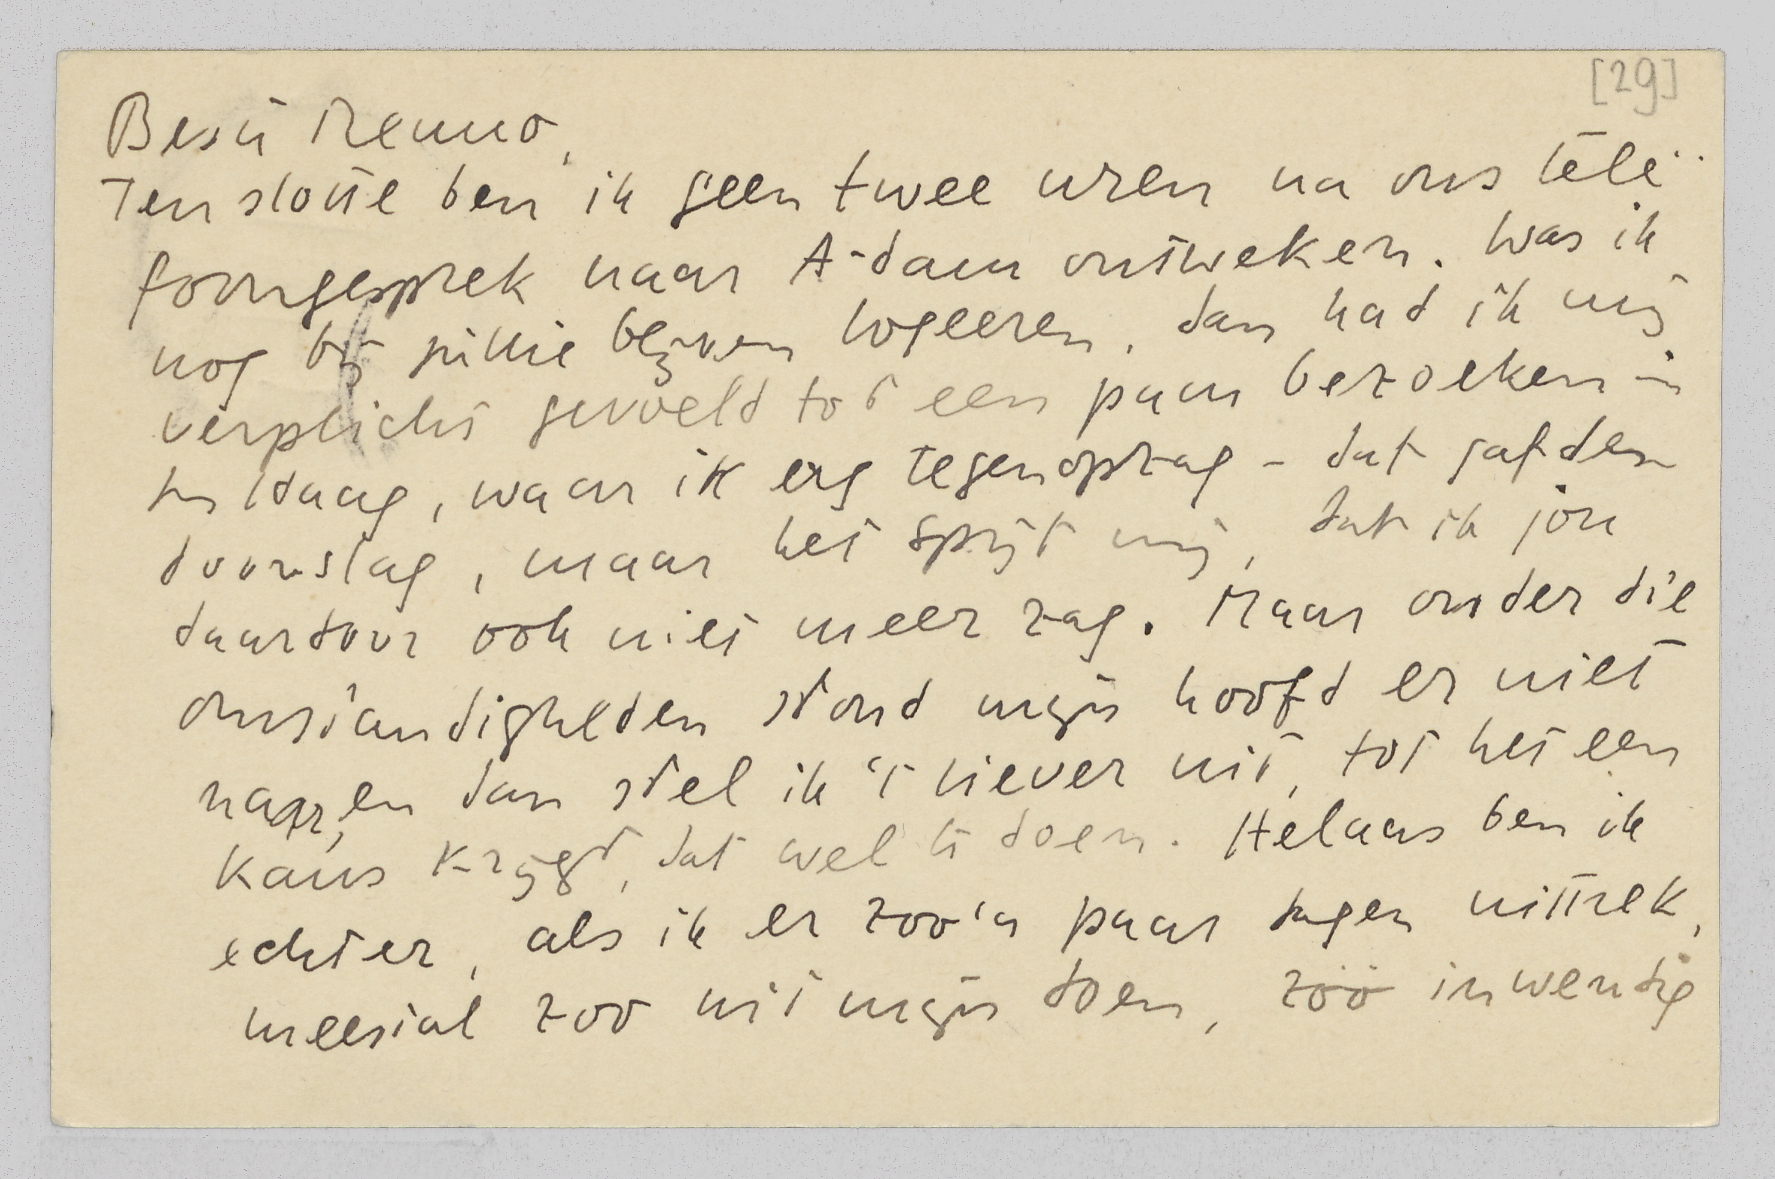 [29]
Beste Menno,
Ten slotte ben ik geen twee uren na ons tele-
foongesprek naar A-dam ontweken. Was ik
nog bij jullie blijven logeeren, dan had ik mij
verplicht gevoeld tot een paar bezoeken in
den Haag, waar ik erg tegenopzag - dat gaf den
doorslag, maar het spijt mij, dat ik jou
daardoor ook niet meer zag. Maar onder die
omstandigheden stond mijn hoofd er niet
naar, en dan stel ik 't liever uit, tot het een
kans krijgt, dat wel te doen. Helaas ben ik
echter, als ik er zoo'n paar dagen uittrek,
meestal zoo uit mijn doen, zóó inwendig